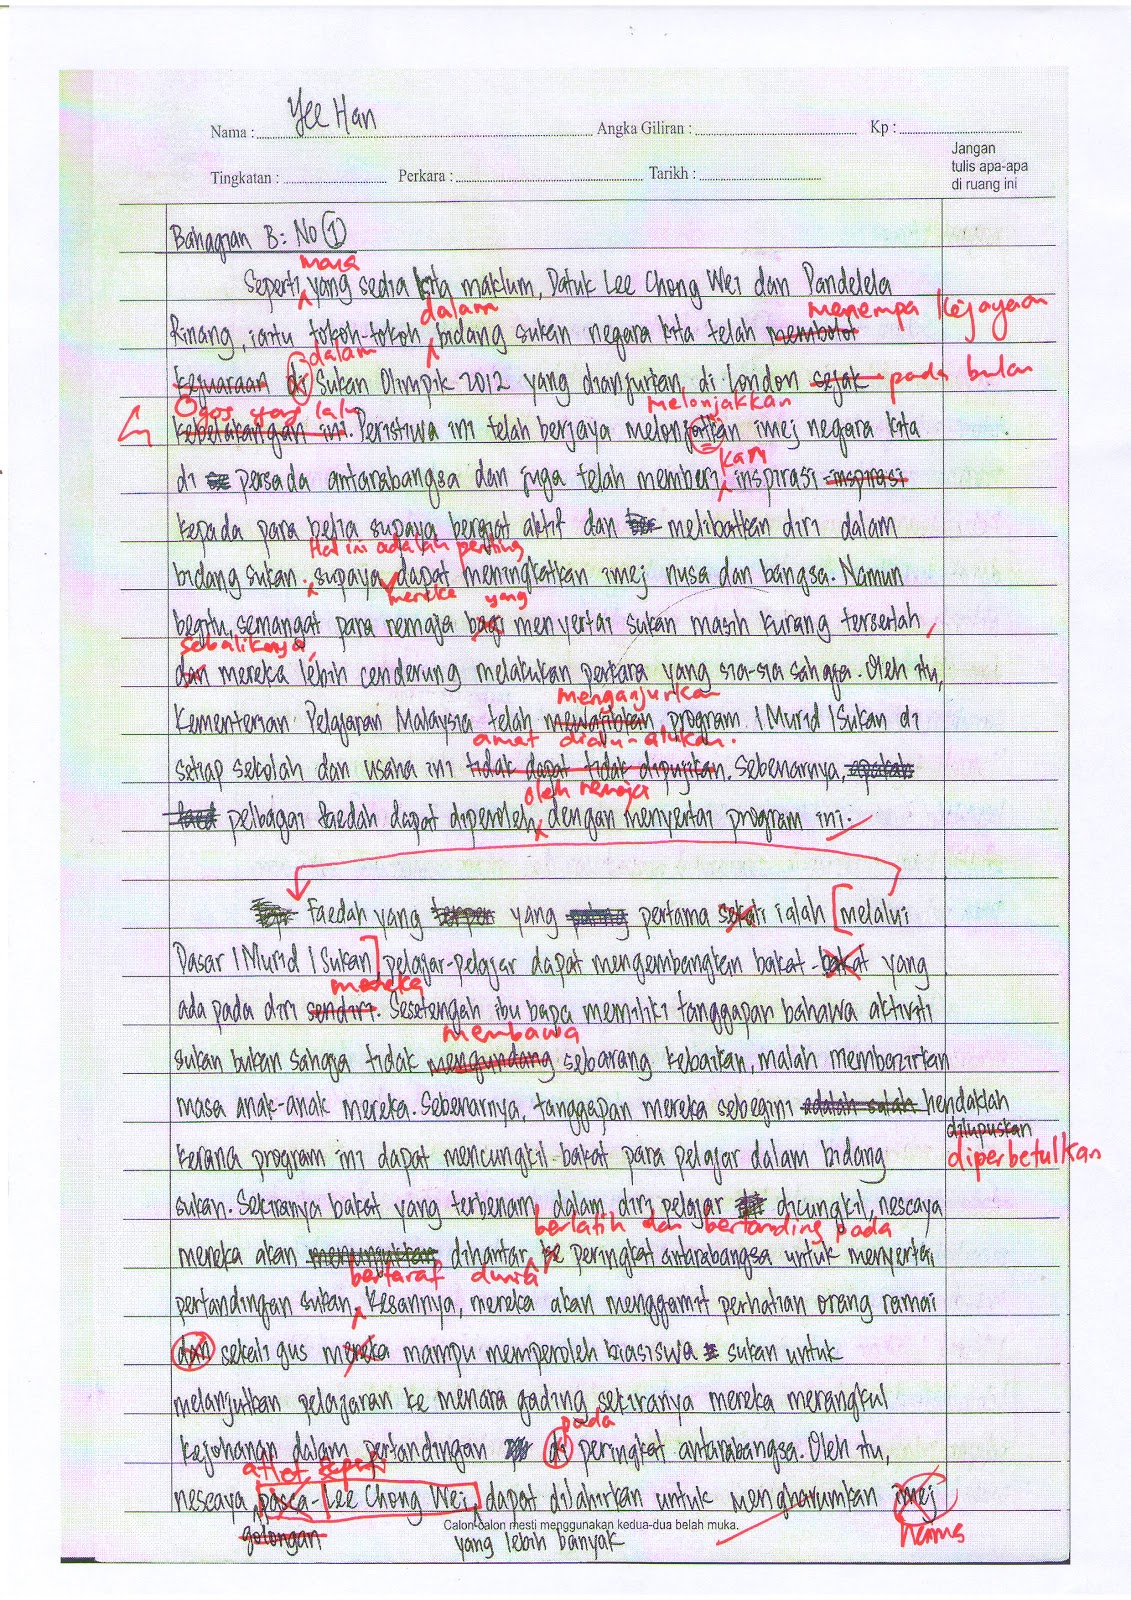 Yee Han
Nama : Angka Giliran : Kp :
Jangan
tulis apa-apa
di ruang ini
Tingkatan : Perkara : Tarikh :
Bahagian B: No 1
mana
Seperti yang sedia kita maklum, Datuk Lee Chong Wei dan Pandelela
dalam menempa kejayaan
Rinang, iaitu tokoh-tokoh bidang sukan negara kita telah membolot
dalam
kejuaraan di Sukan Olimpik 2012 yang dianjurkan di London sejak pada bulan
Ogos yang lalu melonjakkan
kebelakangan ini. Peristiwa ini telah berjaya melonjatkan imej negara kita
kan
di persada antarabangsa dan juga telah memberi inspirasi inspirasi
kepada para belia supaya bergiat aktif dan melibatkan diri dalam
Hal ini adalah penting
bidang sukan. supaya dapat meningkatkan imej nusa dan bangsa. Namun
mereke yang
begitu, semangat para remaja bagi menyertai sukan masih kurang terserlah,
sebaliknya,
dan mereka lebih cenderung melakukan perkara yang sia-sia sahaja. Oleh itu,
menganjurkan
Kementerian Pelajaran Malaysia telah mewajibkan program 1Murid 1Sukan di
amat dialu-alukan.
setiap sekolah dan usaha ini tidak dapat tidak dipujikan. Sebenarnya,
oleh remaja
pelbagai faedah dapat diperoleh dengan menyertai program ini.
Faedah yang yang pertama sekali ialah [melalui
Dasar 1Murid 1Sukan] pelajar-pelajar dapat mengembangkan bakat-bakat yang
mereke
ada pada diri sendiri. Sesetengah ibu bapa memiliki tanggapan bahawa aktiviti
membawa
sukan bukan sahaja tidak mengundang sebarang kebaikan, malah membazirkan
masa anak-anak mereka. Sebenarnya, tanggapan mereka sebegini adalah salah hendaklah
dilupuskan
kerana program ini dapat mencungkil bakat para pelajar dalam bidang diperbetulkan
sukan. Sekiranya bakat yang terbenam dalam diri pelajar dicungkil, nescaya
berlatih dan bertanding pada
mereka akan menunjukkan dihantar ke peringkat antarabangsa untuk menyertai
bertaraf dunia
pertandingan sukan. Kesannya, mereka akan menggamit perhatian orang ramai
dan sekali gus mereka mampu memperoleh biasiswa sukan untuk
melanjutkan pelajaran ke menara gading sekiranya mereka merangkul
pada
kejohanan dalam pertandingan di peringkat antarabangsa. Oleh itu,
atlet seperti
nescaya pasca-Lee Chong Wei dapat dilahirkan untuk mengharumkan imej
Calon-calon mesti menggunakan kedua-dua belah muka.
golongan yang lebih banyak nama